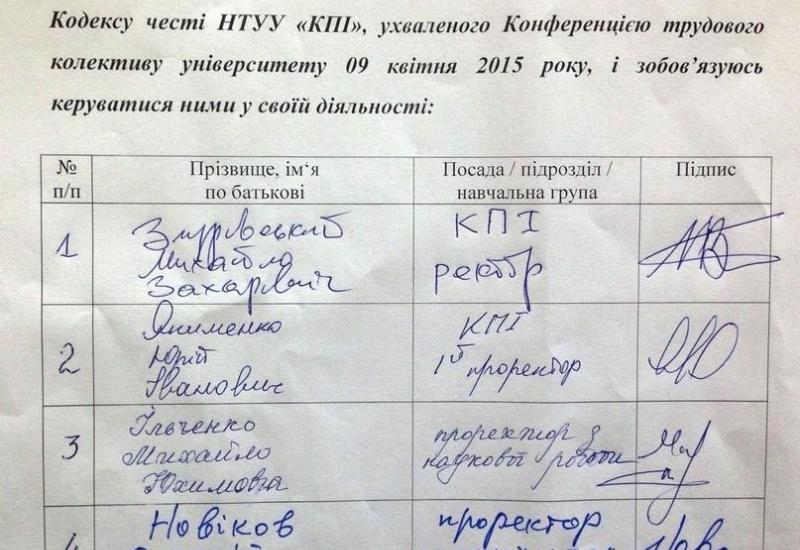 Кодексу честі НТУУ «КПІ», ухваленого Конференцією трудового
колективу університету 09 квітня 2015 року, і зобов’язуюсь
керуватися ними у своїй діяльності:
№ п/п Прізвище, ім‘я по батькові Посада / підрозділ / навчальна група Підпис
1 Згуровський Михайло Захарович КПІ ректор
2 Якименко Юрій Іванович КПІ 1й проректор
3 Ільченко Михайло Юхимович проректор з наукової роботи
4 Новіков проректор